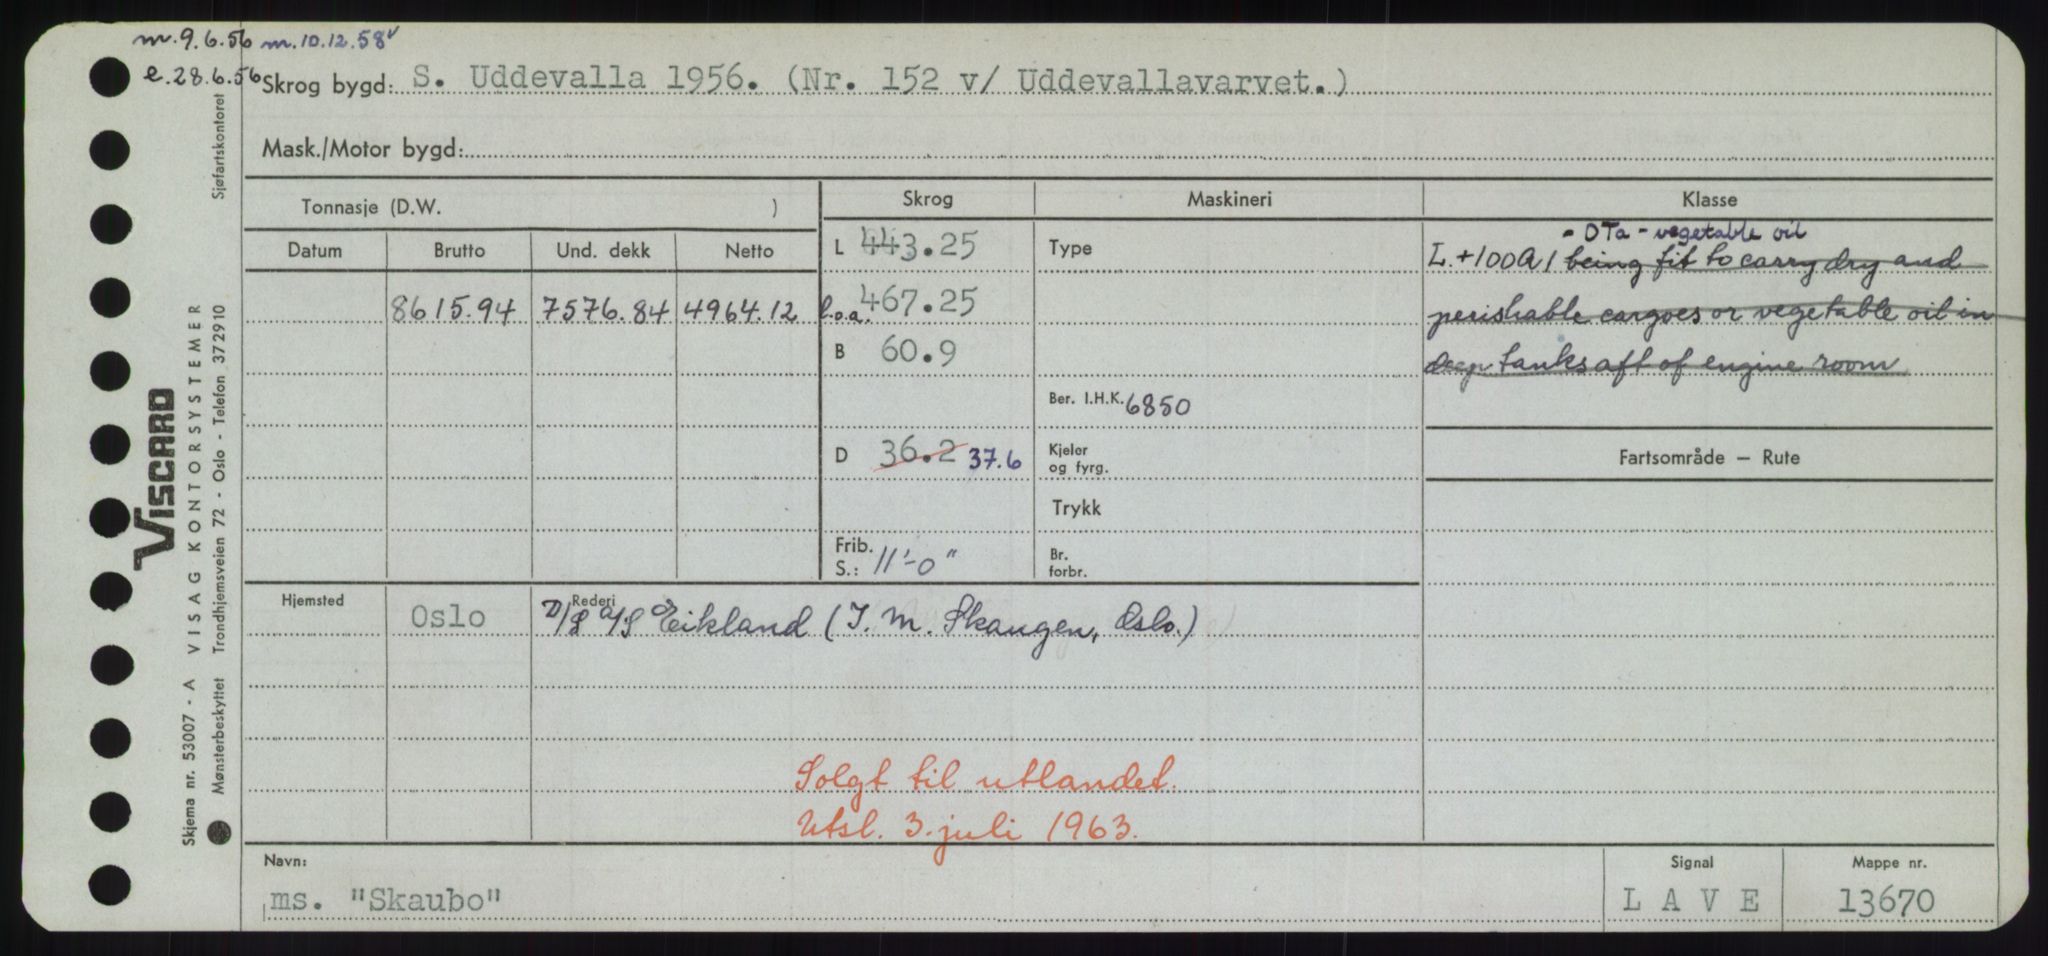 m. 9.6.56 m. 10.12.58 v
e. 28.6.56
Skrog bygd: S. Uddevalla 1956. (Nr. 152 v/ Uddevallavarvet.)
Mask./Motor bygd:
Tonnasje (D.W. )
Skrog
Maskineri
Klasse
Datum
Brutto
Und. dekk
Netto
L 443.25
Type
- DTa - vegetable oil
L. +100A1 being fit to carry dry and
8615.94 7576.84 4964.12
l.o.a. 467.25
perishable cargoes or vegetable oil in
B 60.9
deep tanks aft of engine room
Ber. I.H.K. 6850
D 36.2 37.6
Kjeler
og fyrg.
Fartsområde – Rute
Trykk
Frib.
S.: 11'-0"
Br.
forbr.
Hjemsted
Oslo
Rederi
D/S A/S Eikland (I. M. Skaugen, Oslo.)
Solgt til utlandet.
Utsl. 3. juli 1963.
Navn:
ms. "Skaubo"
Signal
L A V E
Mappe nr.
13670
VISCARD
VISAG KONTORSYSTEMER
Sjøfartskontoret
Trondhjemsveien 72 - Oslo - Telefon 372910
Skjema nr. 53007 - A
Mønsterbeskyttet